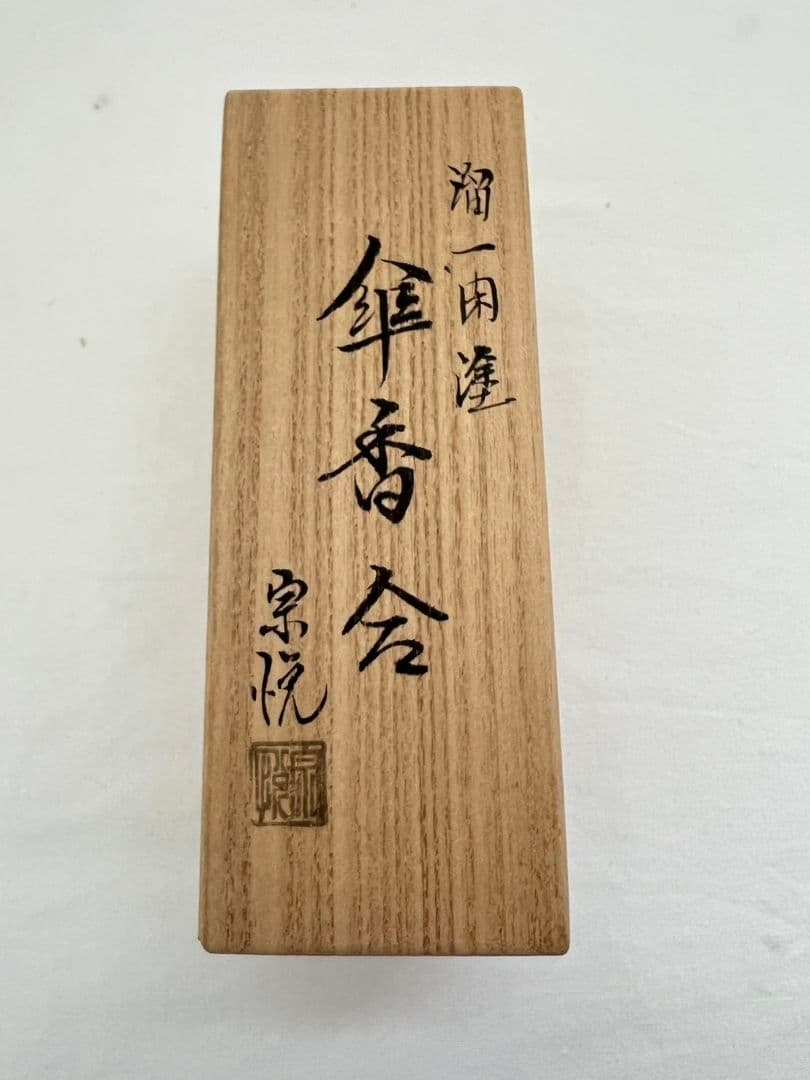 溜一閑塗
傘香合
宗悦